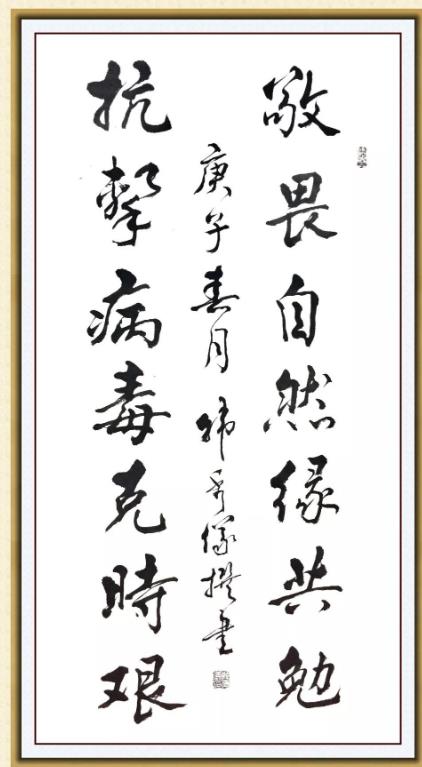 敬畏自然缘共勉
庚子春月 撰書
抗擊病毒克時艰